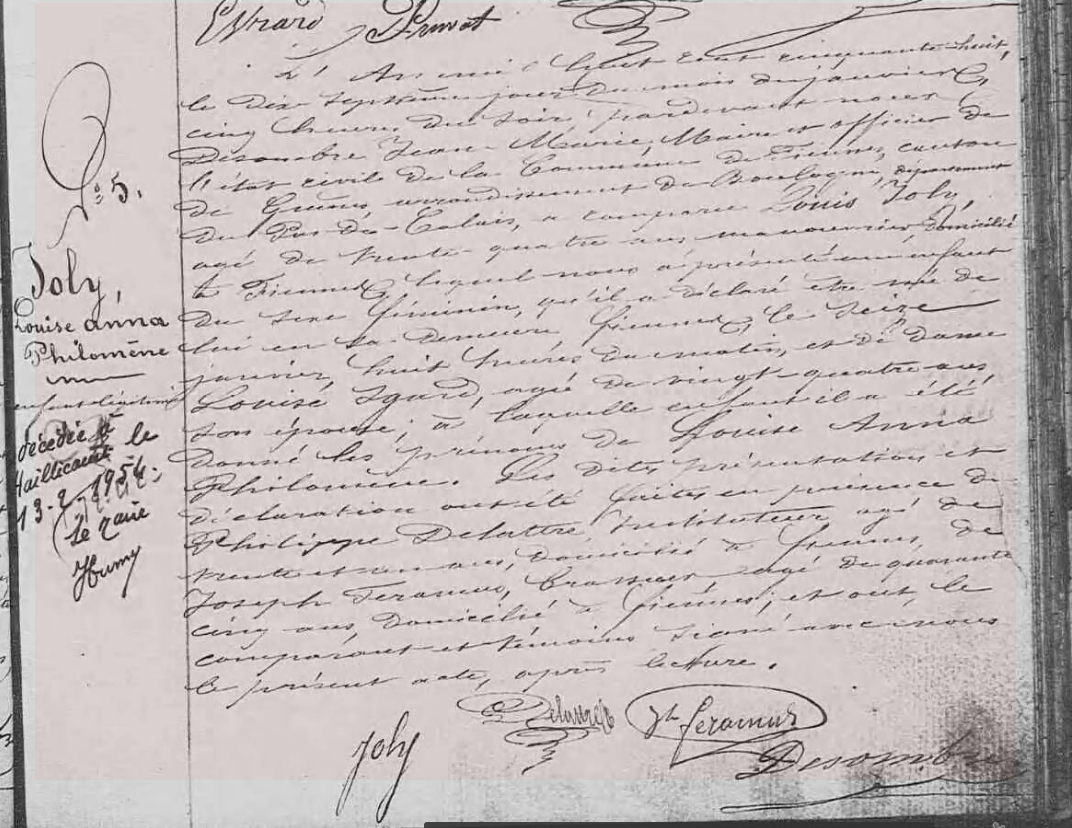 Evrard Pruvot
L'An mil huit cent cinquante-huit,
le dix septième jour du mois de janvier à
cinq heures du soir, pardevant nous
Desombre Jean-Marie, Maire et officier de
l'état civile de la Commune de Fiennes, canton
de Guines, arrondissement de Boulogne, département
du Pas-de-Calais, a comparu Louis Joly,
agé de trente-quatre ans manouvrier, domicilié
à Fiennes, lequel nous a présenté un enfant
du sexe féminin, qu'il a déclaré etre né de
lui en sa demeure à Fiennes, le seize
janvier, huit heures du matin, et de Dame
Louise Igard, agé de vingt-quatre ans
son épouse; à laquelle enfant il a été
donné les prénoms de Louise Anna
Philomène. Les dites présentation et
déclaration ont été faites en présence de
Philippe Delattre, instituteur, agé de
trente et un ans, domicilié à Fiennes, de
Joseph Feramus, brasseur, agé de quarante
cinq ans, domicilié à Fiennes; et ont, le
comparant et témoins signé avec nous
le présent acte, après lecture.
N° 5.
Joly,
Louise anna
Philomène
enfant légitime
décédée à
le
13-2-1954
Le maire
Joly Delattre Jh feramus
Desombre